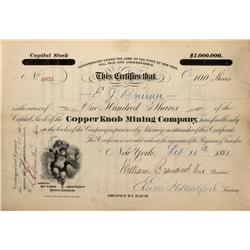 INCORPORATED UNDER THE LAWS OF THE STATE OF NEW YORK
FULL PAID AND UNASSESSABLE
Capital Stock
$1,000,000.
This Certifies that
No
100 Shares
E. J. Brunner
is the owner of One Hundred Shares of the
Capital Stock of the Copper Knob Mining Company, transferable only
on the books of the Company in person or by Attorney on surrender of this Certificate.
This Certificate is not valid until countersigned by the Registrar of Transfers
New York, Feb 10th 1881
William Brandreth
President
Secretary
ASHE COUNTY
NORTH CAROLINA
SHARES $10. EACH